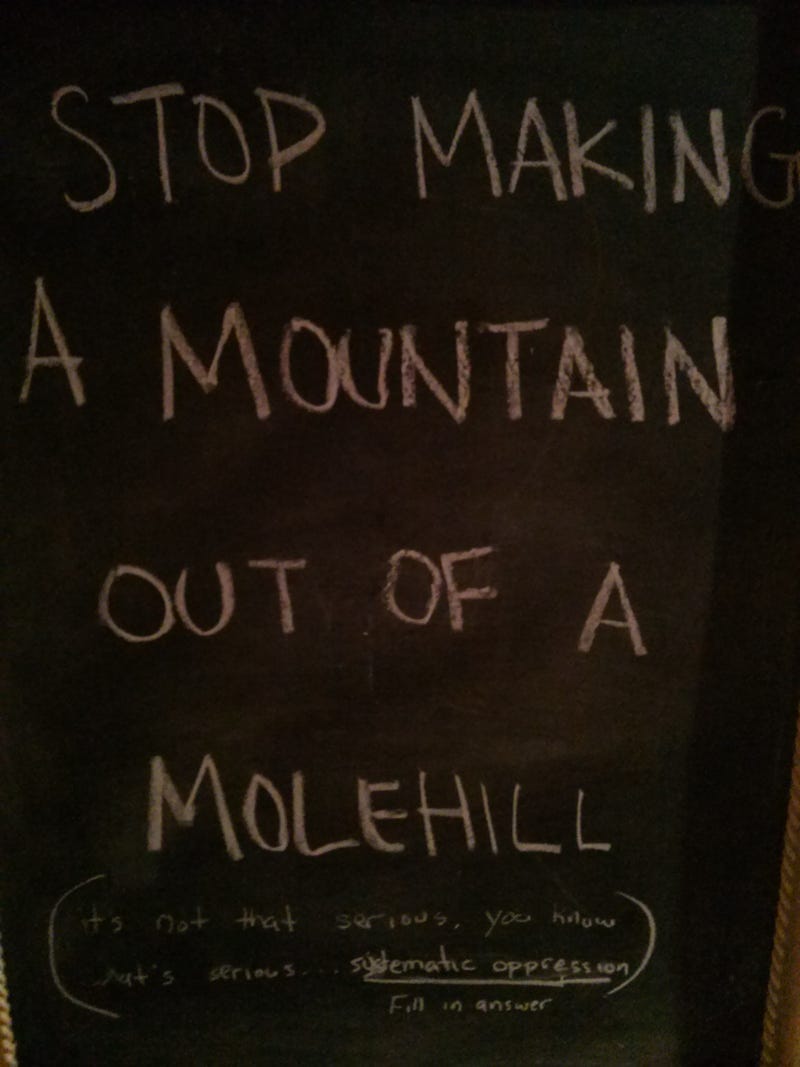 STOP MAKING
A MOUNTAIN
OUT OF A
MOLEHILL
(it's not that serious, you know
what's serious... systematic oppression)
Fill in answer